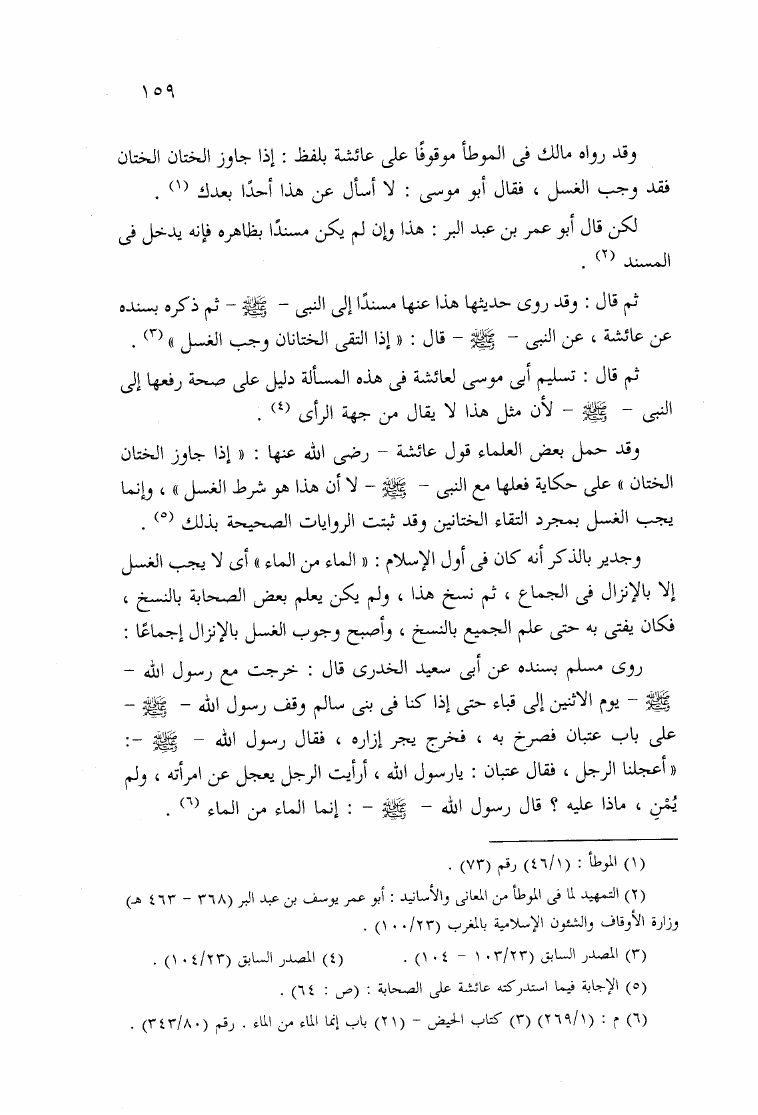 ١٥٩
وقد رواه مالك فى الموطأ موقوفًا على عائشة بلفظ : إذا جاوز الختان الختان
فقد وجب الغسل ، فقال أبو موسى : لا أسأل عن هذا أحدًا بعدك (١) .
لكن قال أبو عمر بن عبد البر : هذا وإن لم يكن مسندًا بظاهره فإنه يدخل فى
المسند (٢) .
ثم قال : وقد روى حديثها هذا عنها مسندًا إلى النبى - ﷺ - ثم ذكره بسنده
عن عائشة ، عن النبى - ﷺ - قال : « إذا التقى الختانان وجب الغسل » (٣) .
ثم قال : تسليم أبى موسى لعائشة فى هذه المسألة دليل على صحة رفعها إلى
النبى - ﷺ - لأن مثل هذا لا يقال من جهة الرأى (٤) .
وقد حمل بعض العلماء قول عائشة - رضى الله عنها : « إذا جاوز الختان
الختان » على حكاية فعلها مع النبى - ﷺ - لا أن هذا هو شرط الغسل » ، وإنما
يجب الغسل بمجرد التقاء الختانين وقد ثبتت الروايات الصحيحة بذلك (٥) .
وجدير بالذكر أنه كان فى أول الإسلام : « الماء من الماء » أى لا يجب الغسل
إلا بالإنزال فى الجماع ، ثم نسخ هذا ، ولم يكن يعلم بعض الصحابة بالنسخ ،
فكان يفتى به حتى علم الجميع بالنسخ ، وأصبح وجوب الغسل بالإنزال إجماعًا :
روى مسلم بسنده عن أبى سعيد الخدرى قال : خرجت مع رسول الله -
ﷺ - يوم الاثنين إلى قباء حتى إذا كنا فى بنى سالم وقف رسول الله - ﷺ -
على باب عتبان فصرخ به ، فخرج يجر إزاره ، فقال رسول الله - ﷺ -:
« أعجلنا الرجل ، فقال عتبان : يارسول الله ، أرأيت الرجل يعجل عن امرأته ، ولم
يُمْنِ ، ماذا عليه ؟ قال رسول الله - ﷺ - : إنما الماء من الماء (٦) .
(١) الموطأ : (٤٦/١) رقم (٧٣) .
(٢) التمهيد لما فى الموطأ من المعانى والأسانيد : أبو عمر يوسف بن عبد البر (٣٦٨ - ٤٦٣ هـ)
وزارة الأوقاف والشئون الإسلامية بالمغرب (١٠٠/٢٣) .
(٣) المصدر السابق (١٠٣/٢٣ - ١٠٤) . (٤) المصدر السابق (١٠٤/٢٣) .
(٥) الإجابة فيما استدركته عائشة على الصحابة : (ص : ٦٤) .
(٦) م : (٢٦٩/١) (٣) كتاب الحيض - (٢١) باب إنما الماء من الماء . رقم (٣٤٣/٨٠) .